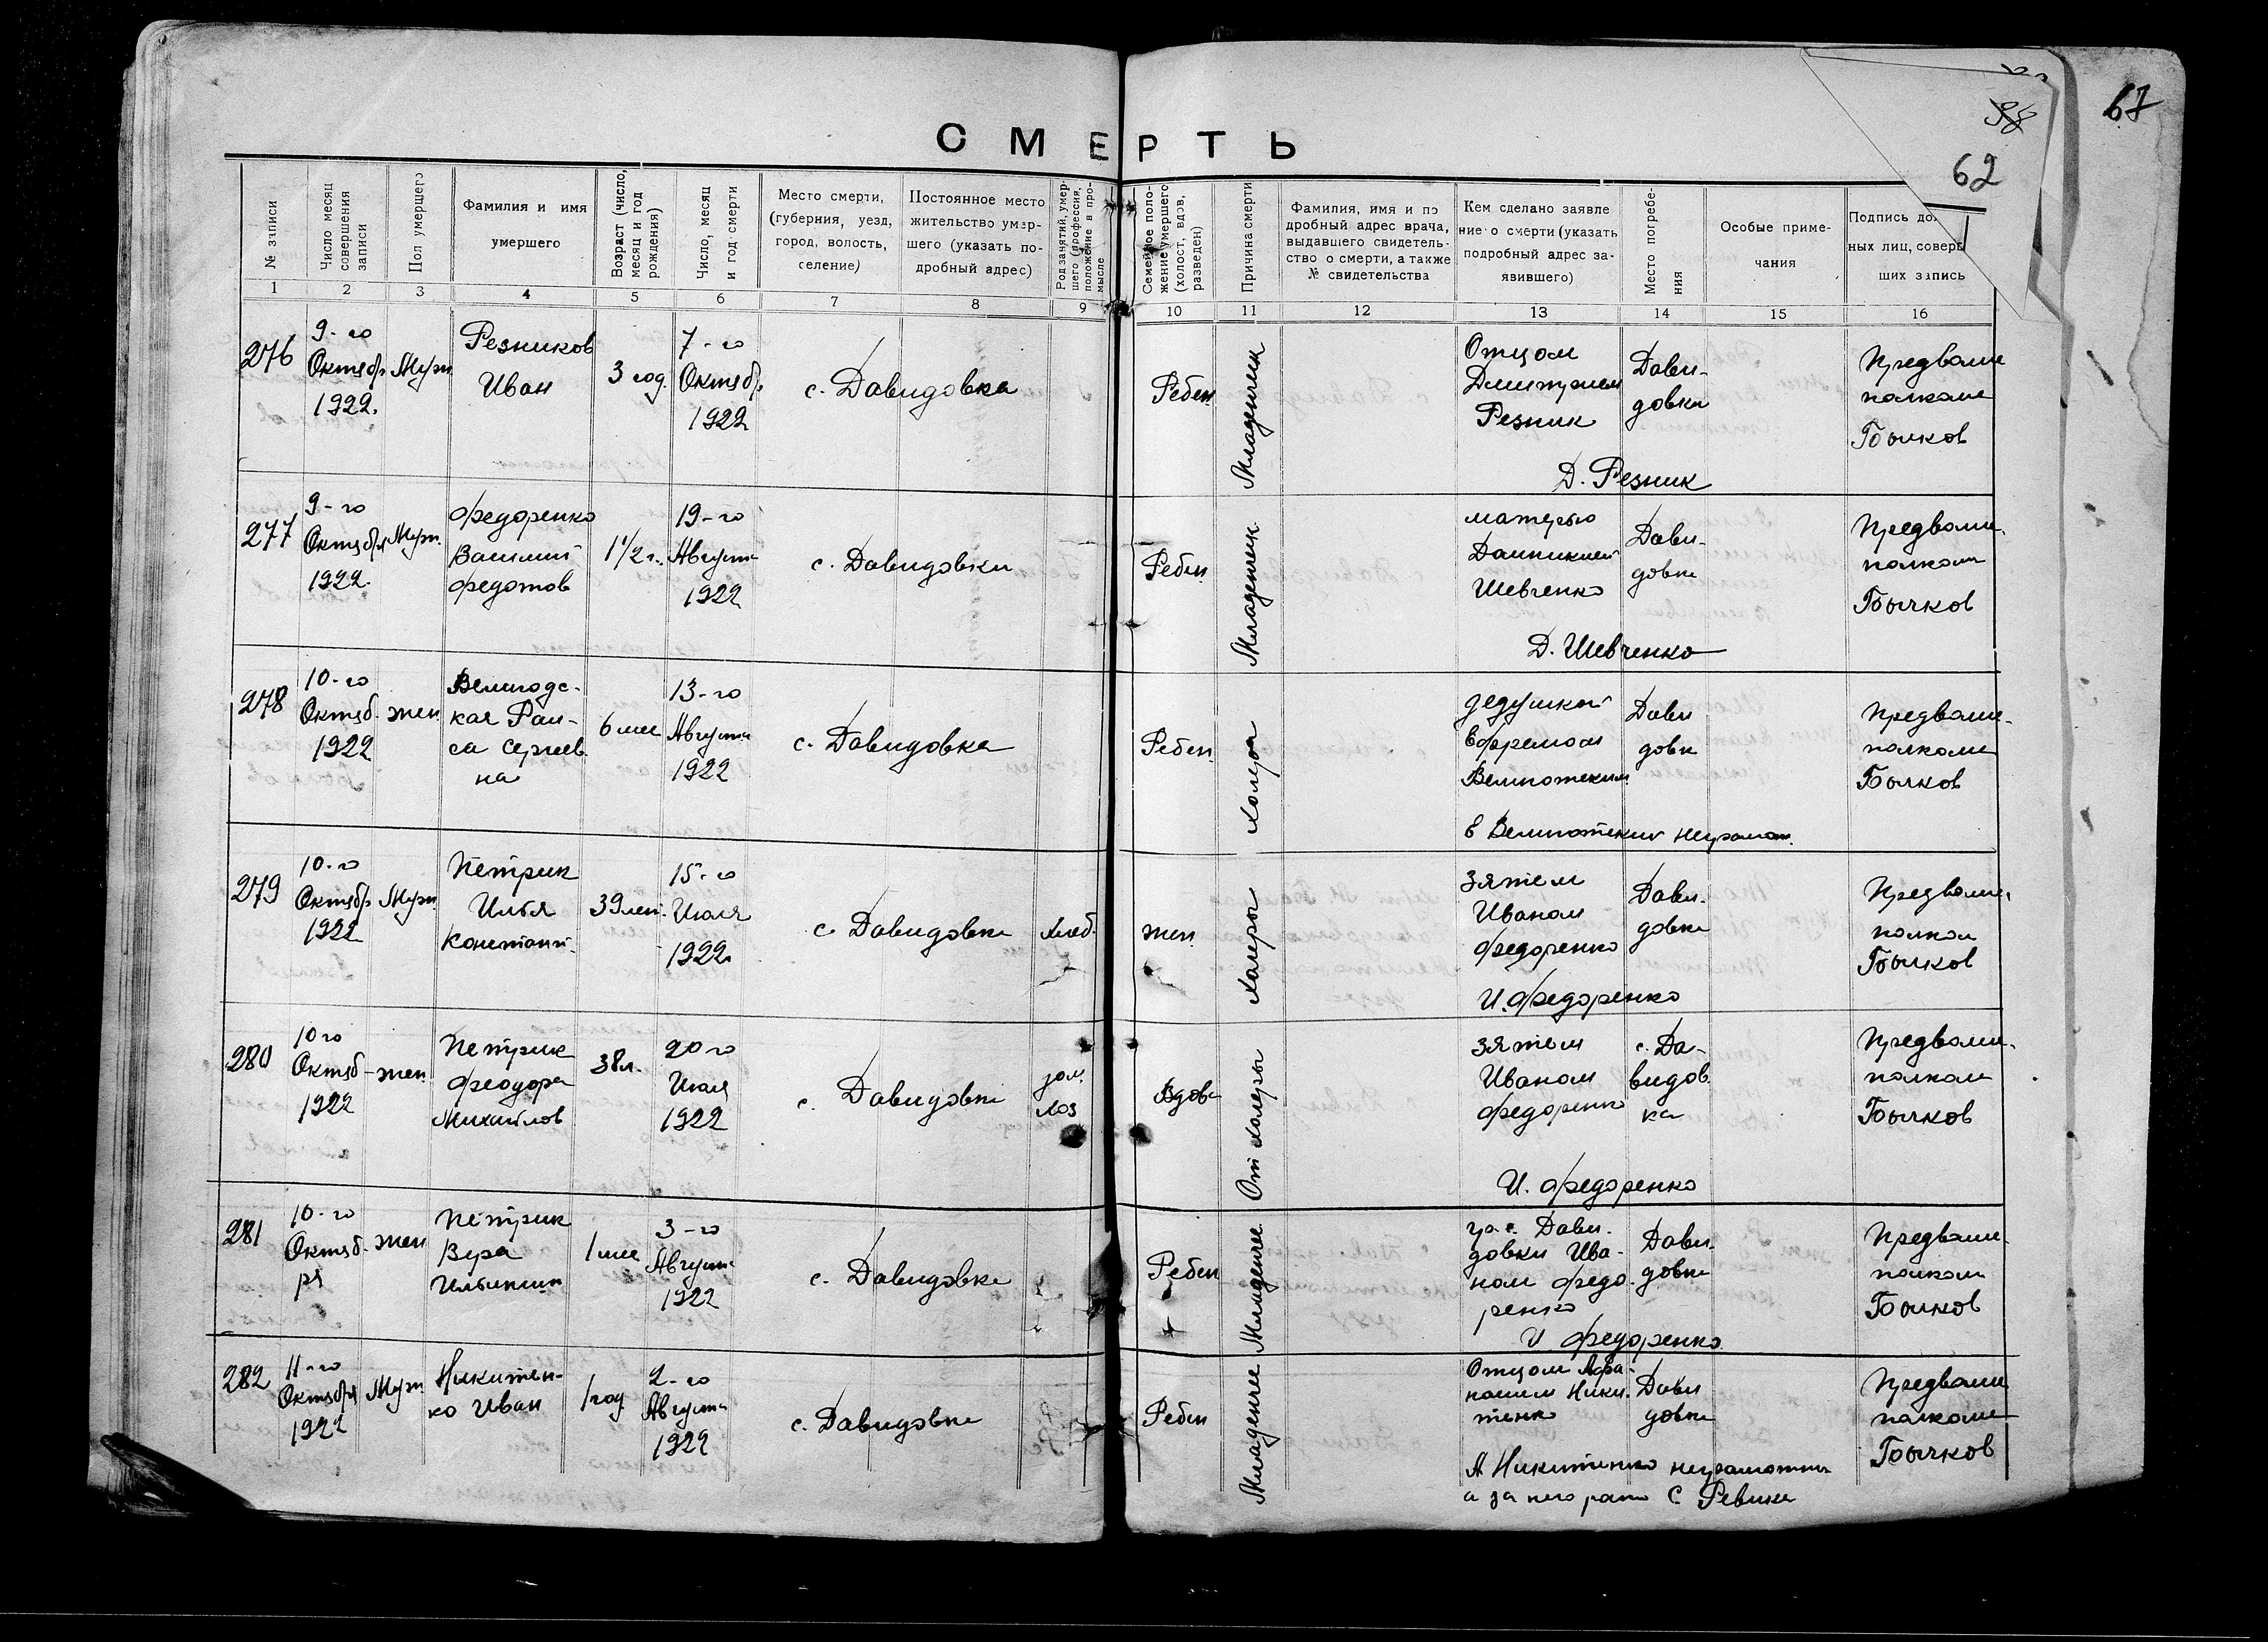 67
62
СМЕРТЬ
№ записи
Число месяц совершения записи
Пол умершего
Фамилия и имя умершего
Возраст (число, месяц и год рождения)
Число, месяц и год смерти
Место смерти, (губерния, уезд, город, волость, селение)
Постоянное место жительство умершего (указать подробный адрес)
Род занятий, умершего (профессия, положение в промысле
Семейное положение умершего (холост, вдов, разведен)
Причина смерти
Фамилия, имя и подробный адрес врача, выдавшего свидетельство о смерти, а также № свидетельства
Кем сделано заявление о смерти (указать подробный адрес заявившего)
Место погребения
Особые примечания
Подпись
ных лиц, соверш
ших запись
1 2 3 4 5 6 7 8 9 10 11 12 13 14 15 16
276
9-го Октябр 1922.
Муж.
Резников Иван
3 год.
7-го Октябр 1922
с. Давидовка
Ребен.
Младенчик
Отцом Дмитрием Резник
Давидовки
Предволисполкома Бычков
Д. Резник
277
9-го Октября 1922.
Муж.
Федоренко Василий Федотов
1 1/2 г.
19-го Август 1922
с. Давидовки
Ребен
Младенчик
матерью
Шевченко
Давидовке
Бычков
Д. Шевченко
278
10-го Октяб. 1922
жен.
Раиса Сергеевна
6 мес
13-го Августа 1922
с. Давидовка
Ребен.
Холера
дедушкой
Давидовк
Бычков
279
10-го Октябр 1922
Муж.
Петрик Илья Констант.
39 лет.
15-го Июля 1922
с. Давидовке
Хлеб.
жен.
Холеры
зятем Иваном Федоренко
Давидовке
Бычков
И. Федоренко
280
10 го Октяб 1922
жен.
Петрик Феодора Михайлов
38 л.
20 го Июля 1922
с. Давидовке
дом. хоз
Вдова
От холеры
зятем Иваном Федоренко
с. Давидовка
Бычков
И. Федоренко
281
10-го Октября
жен
Петрик Вера
1 мес
3-го Август 1922
с. Давидовке
Ребен
Младенчес
гр. с. Давидовки Иваном Федоренко
Давидовке
Бычков
И Федоренко.
282
11-го Октября 1922
Муж.
Никитенко Иван
1 год
2-го Августа 1922
с. Давидовке
Ребен
Младенчес
Отцом Афанасием Никитенко
Давидовке
Бычков
А Никитенко неграмотны
а за него